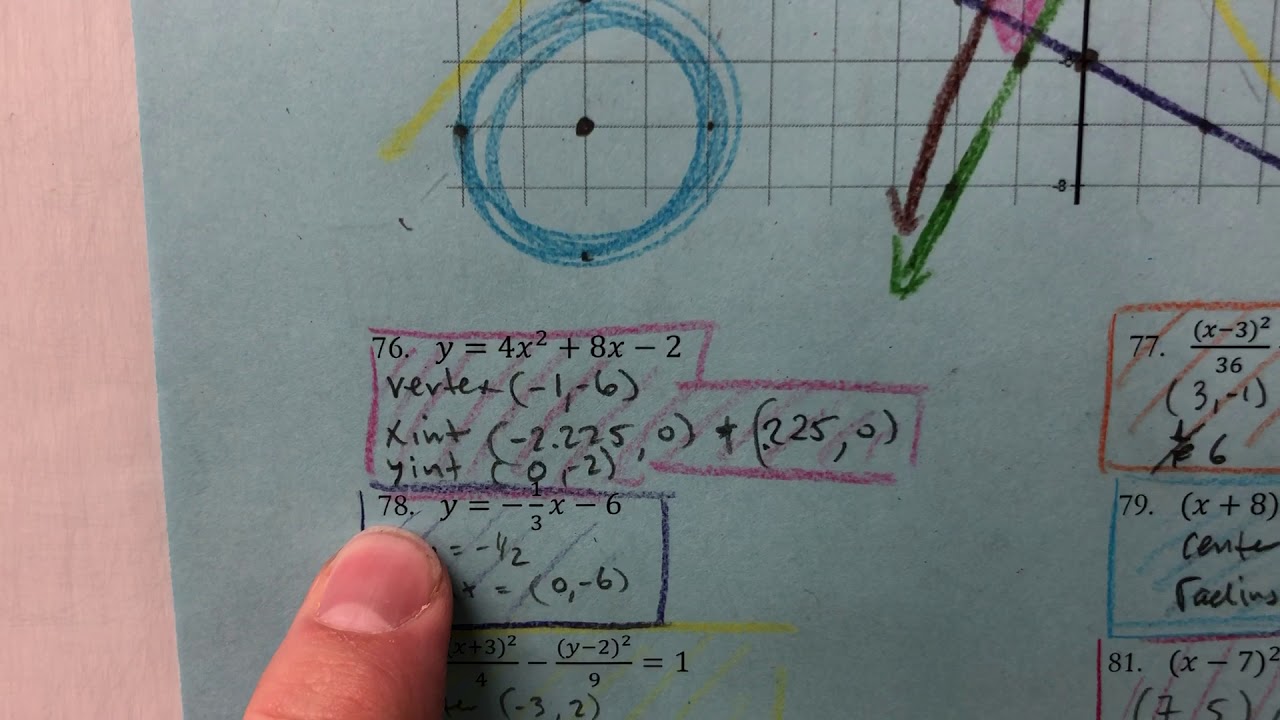 -8
76. y = 4x² + 8x − 2
vertex (-1,-6)
xint (-2.225, 0) + (.225, 0)
yint (0,-2)
77. (x−3)²/36
(3,-1)
6
78. y = −1/3x − 6
= -1/2
= (0,-6)
79. (x + 8)
Center
Radius
(x+3)²/4 − (y−2)²/9 = 1
(-3,2)
81. (x − 7)²
(7 5)